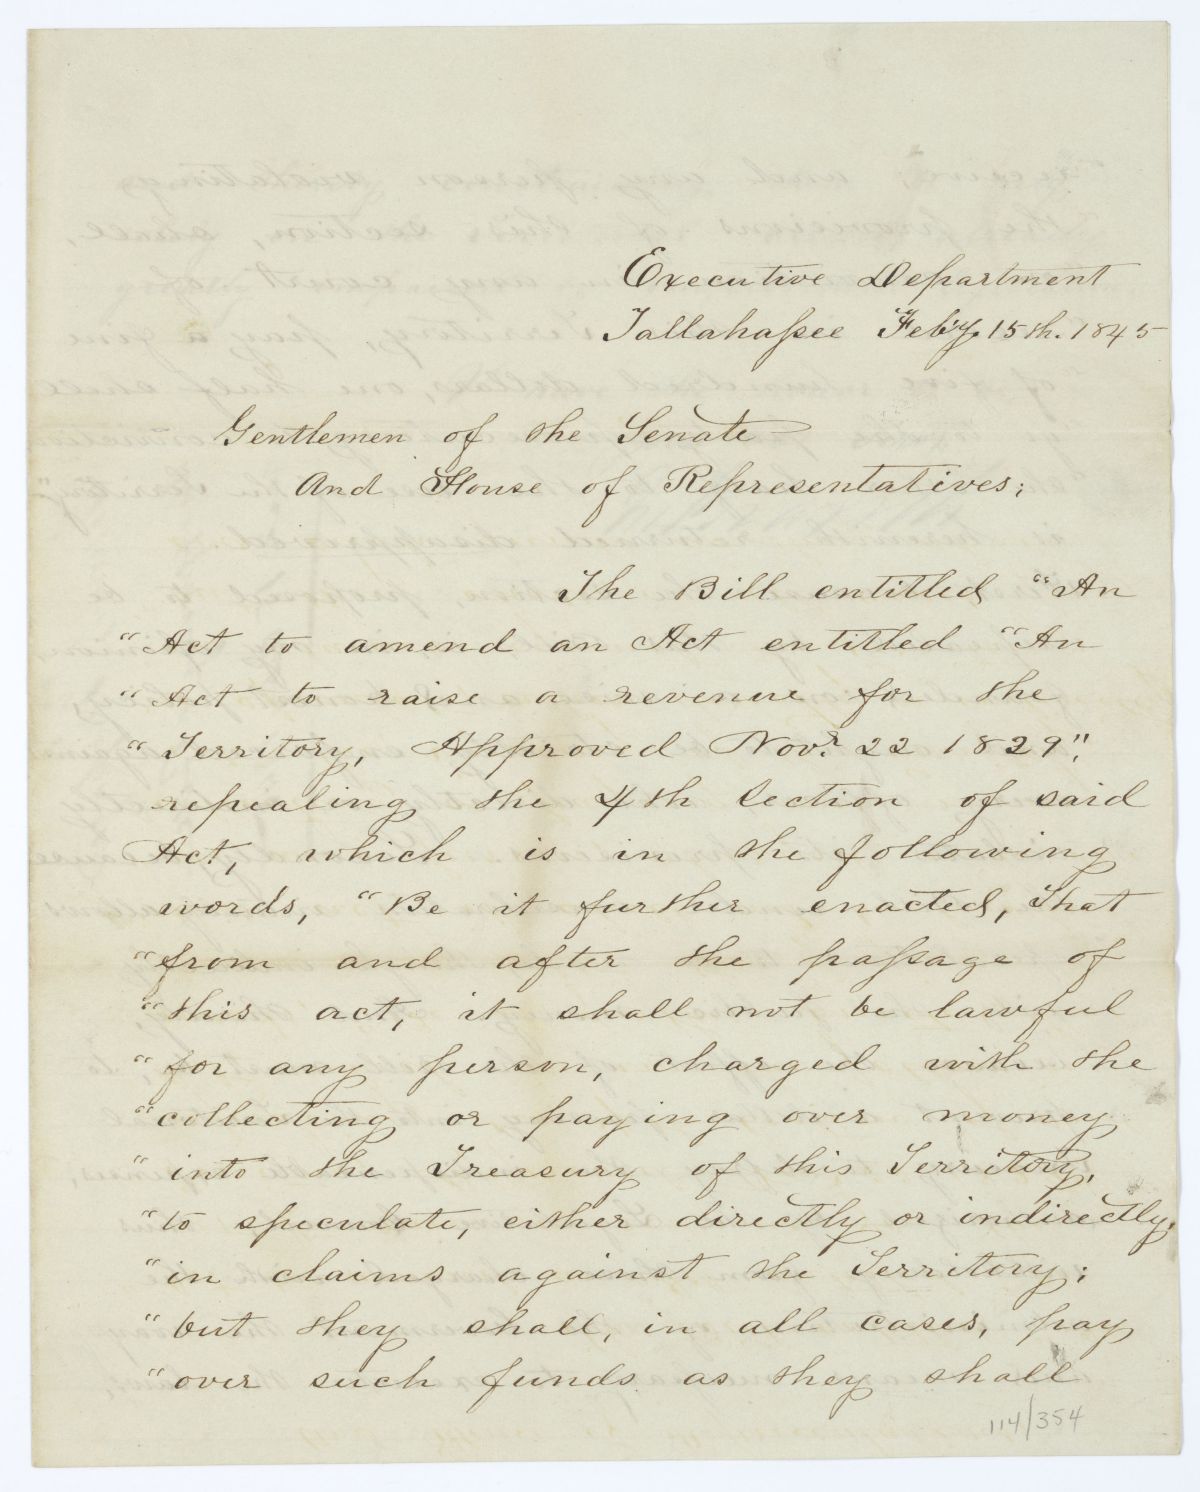 Executive Department
Tallahassee Feb'y 15th. 1845
Gentlemen of the Senate
And House of Representatives;
The Bill entitled "An
"Act to amend an Act entitled "An
"Act to raise a revenue for the
"Territory, Approved Novr. 22 1829",
repealing the 4th Section of said
Act, which is in the following
words, "Be it further enacted, That
"from and after the passage of
"this act, it shall not be lawful
"for any person, charged with the
"collecting or paying over money
"into the Treasury of this Territory,
"to speculate, either directly or indirectly,
"in claims against the Territory;
"but they shall, in all cases, pay
"over such funds as they shall
114/354